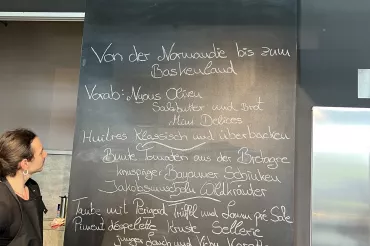 Von der Normandie bis zum
Baskenland
Vorab: Nyons Oliven
Salzbutter und Brot
Mini Delices
Huîtres Klassisch und überbacken
Bunte Tomaten aus der Bretagne
knuspriger Bayonner Schinken
Jakobsmuscheln Wildkräuter
Taube mit Perigord Trüffel und Lamm pré Sale
Piment despellette Kruste Sellerie
junger Lauch und